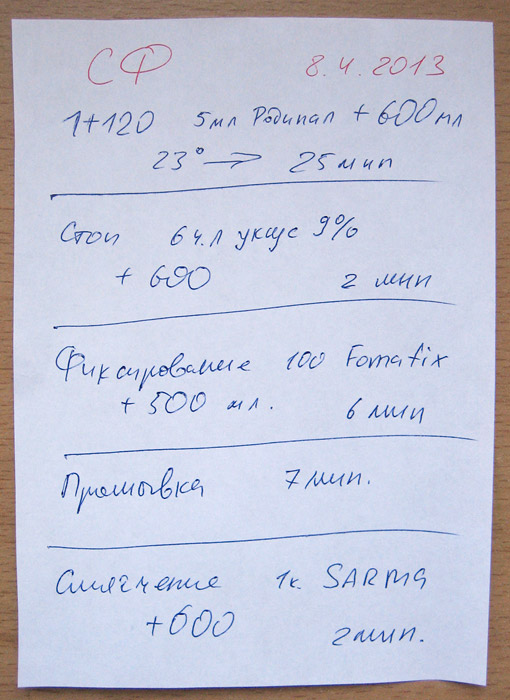 СФ 8.4.2013
1+120 5мл Родинал + 600мл
23° → 25мин
Стоп 6 ч.л уксус 9%
+ 600 2 мин
Фиксирование 100 Fomafix
+ 500 мл. 6 мин
Промывка 7 мин.
Смягчение 1к. SARMA
+600 2мин.